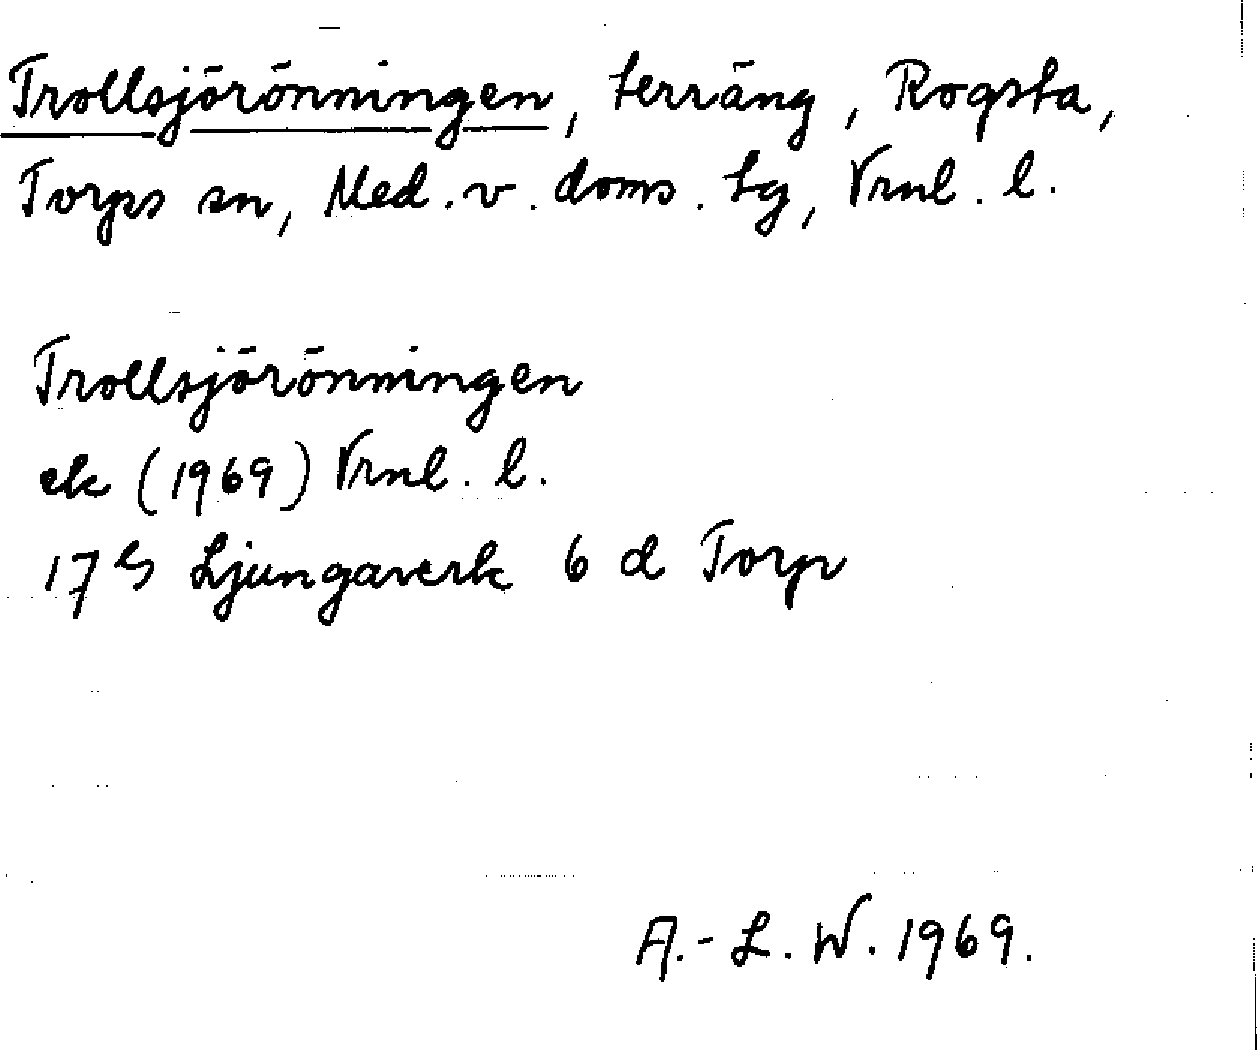 Trollsjörönningen, terräng, Rogsta,
Torps sn, Med. v. doms. tg, Vrnl. l.
Trollsjörönningen
ek (1969) Vrnl. l.
17 G Ljungaverk 6 d Torp
A.-L. W. 1969.